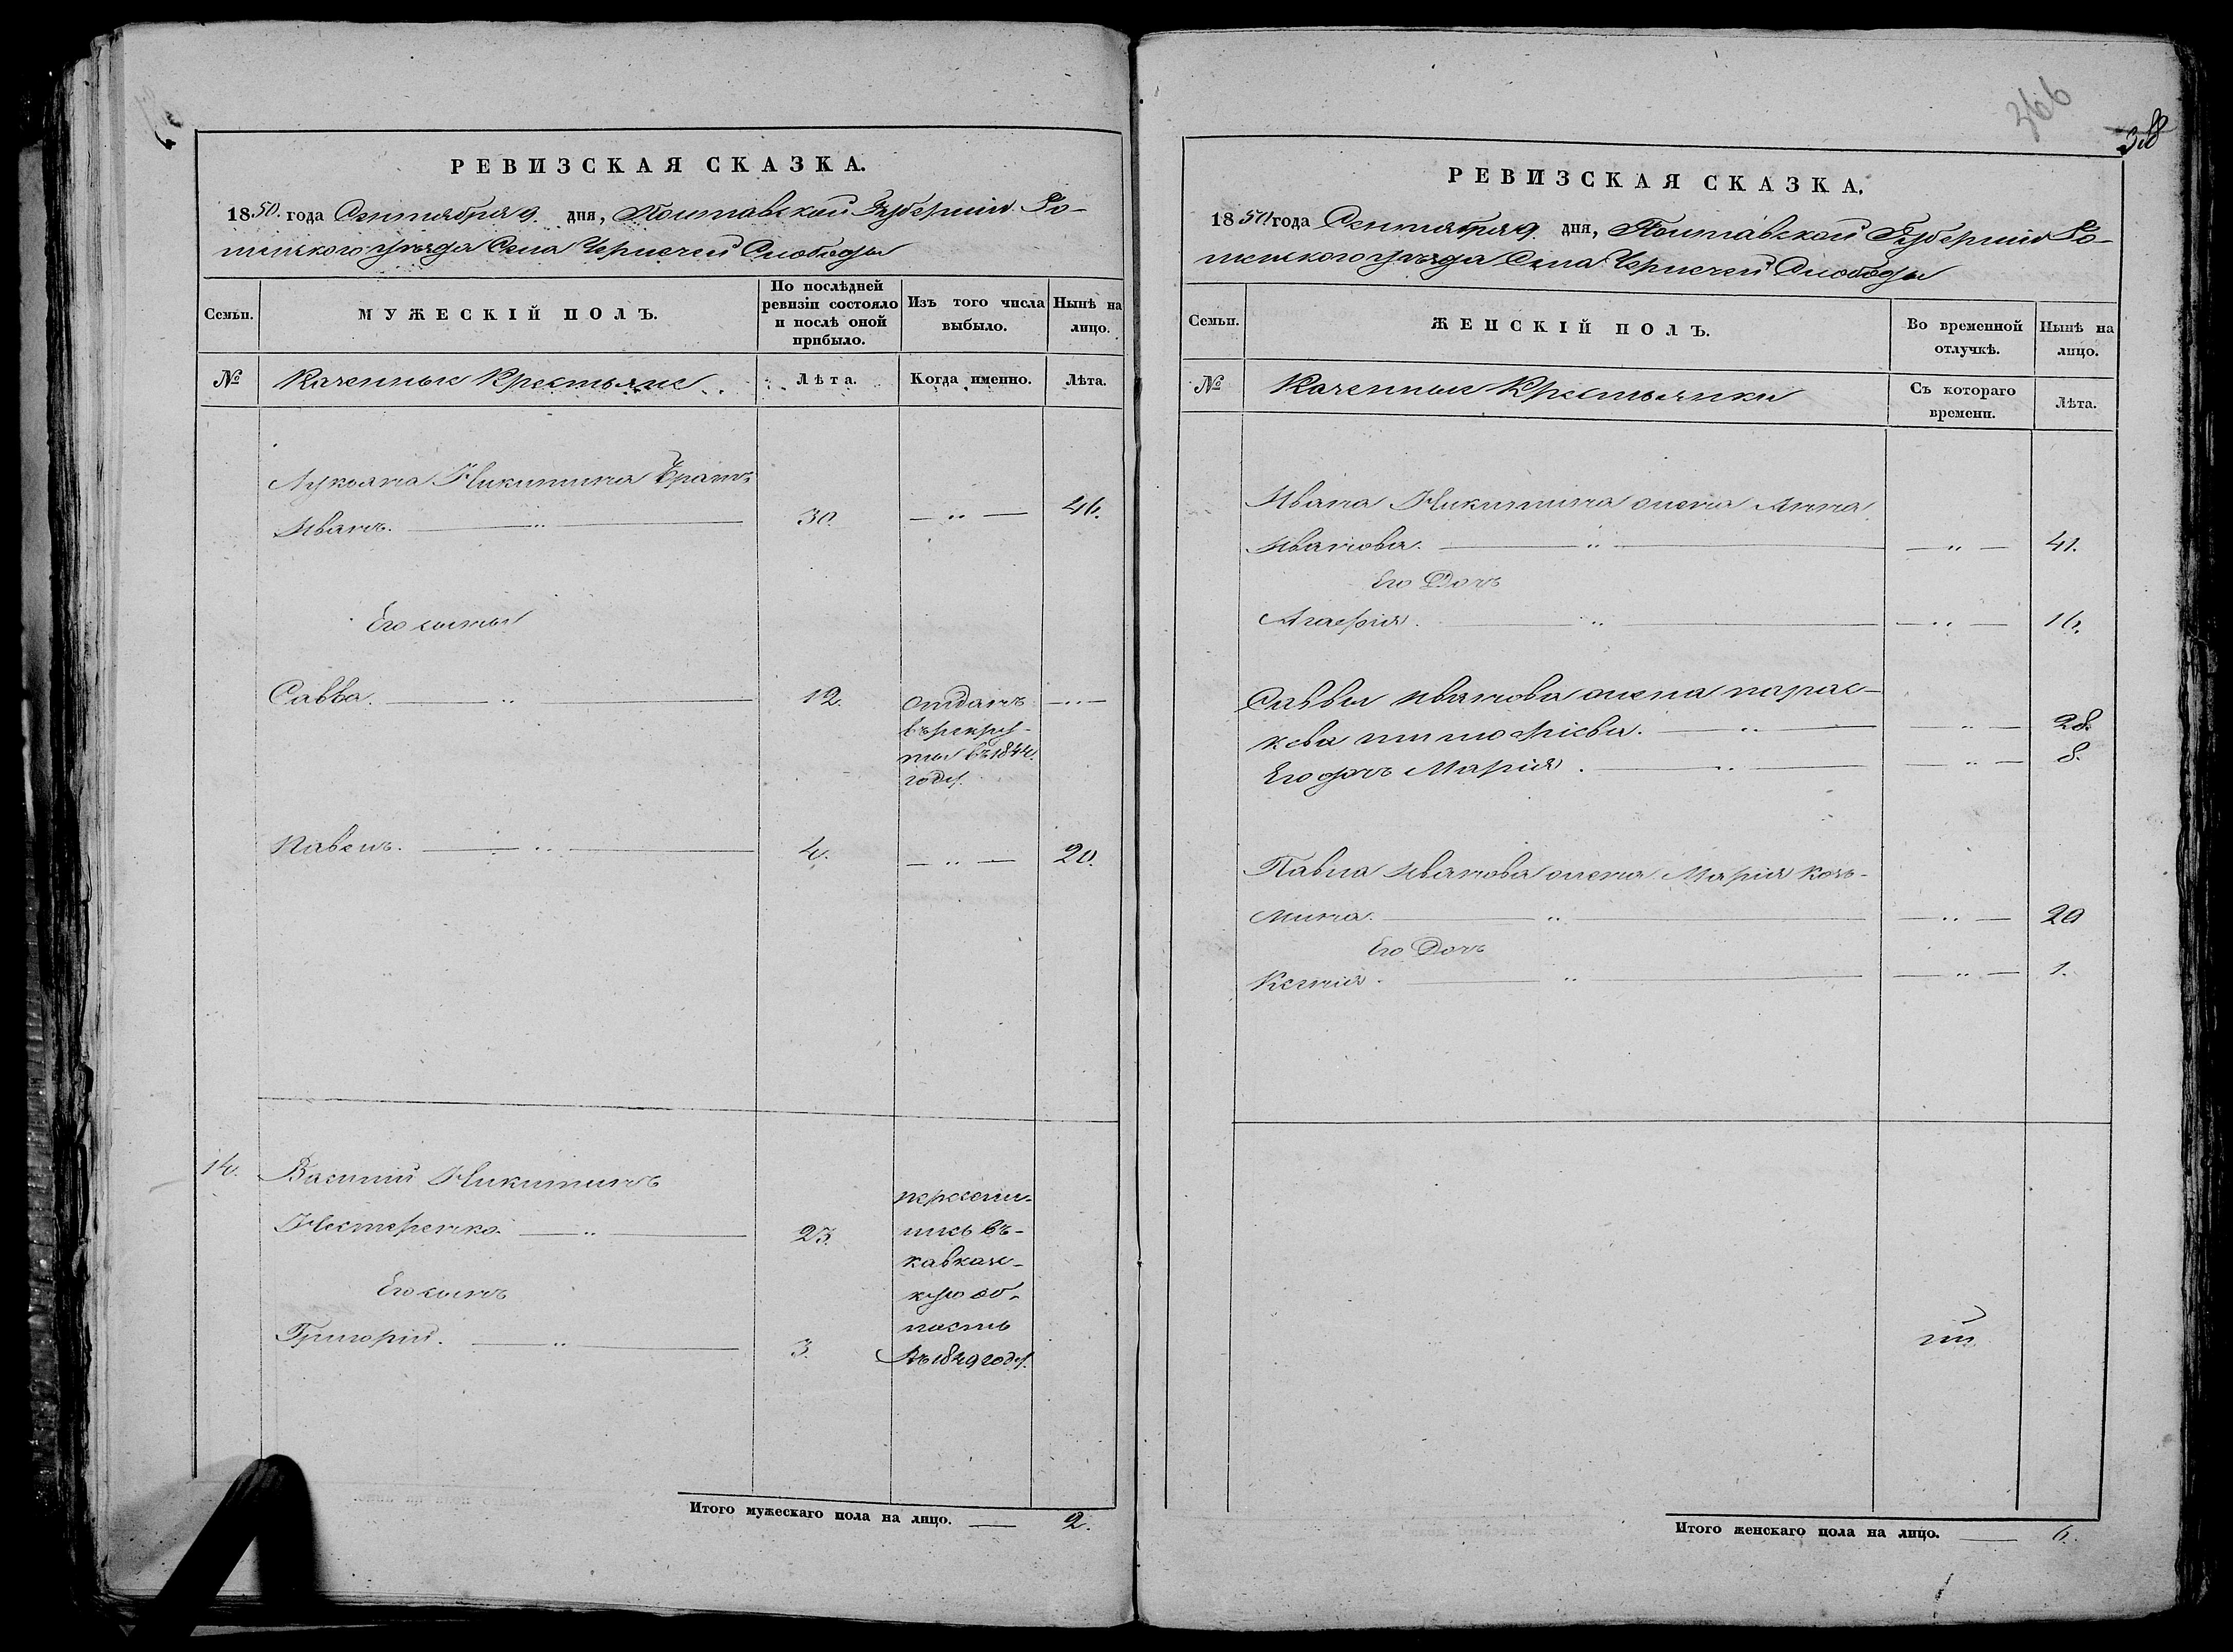 РЕВИЗСКАЯ СКАЗКА.
1850. года Сентября 9. дня, Полтавской Губернии Ро-
менского уѣзда Села Чернечей Слободы
Семьи.
МУЖЕСКІЙ ПОЛЪ.
По послѣдней ревизіи состояло и послѣ оной прибыло.
Изъ того числа выбыло.
Нынѣ на лицо.
№
Казенные Крестьяне
Лѣта.
Когда именно.
Лѣта.
Лукьяна Никитина братъ
Иванъ. — „ — 30. — „ — 46.
Его сыны
Савва. — „ — 12. отданъ — „ —
въ рекру-
ты въ 1844.
году.
Павелъ. — „ — 4. — „ — 20.
14. Василий Никитинъ
Нестеренко. — „ — 23.
Его сынъ
Григорій. — „ — 3.
пересели-
лись въ-
кавказс-
кую об-
ласть
Въ 1849 году.
Итого мужескаго пола на лицо. — 2.
366
38
РЕВИЗСКАЯ СКАЗКА.
1850 года Сентября 9. дня, Полтавской Губернии Ро-
менского уѣзда Села Чернечей Слободы
Семьи.
ЖЕНСКІЙ ПОЛЪ.
Во временной отлучкѣ.
Нынѣ на лицо.
№
Казенные Крестьянки
Съ котораго времени.
Лѣта.
Ивана Никитина жена Анна
Иванова. — „ — — „ — 41.
Его Дочь
Агафія. — „ — — „ — 16.
Саввы Иванова жена парас-
кева тимофіева. — „ — — „ — 28.
Его дочь Марія. — „ — — „ — 8.
Павла Иванова жена Марія козь-
мина. — „ — — „ — 20
Его Дочь
Ксенія. — „ — — „ — 1.
Итого женскаго пола на лицо. — 6.